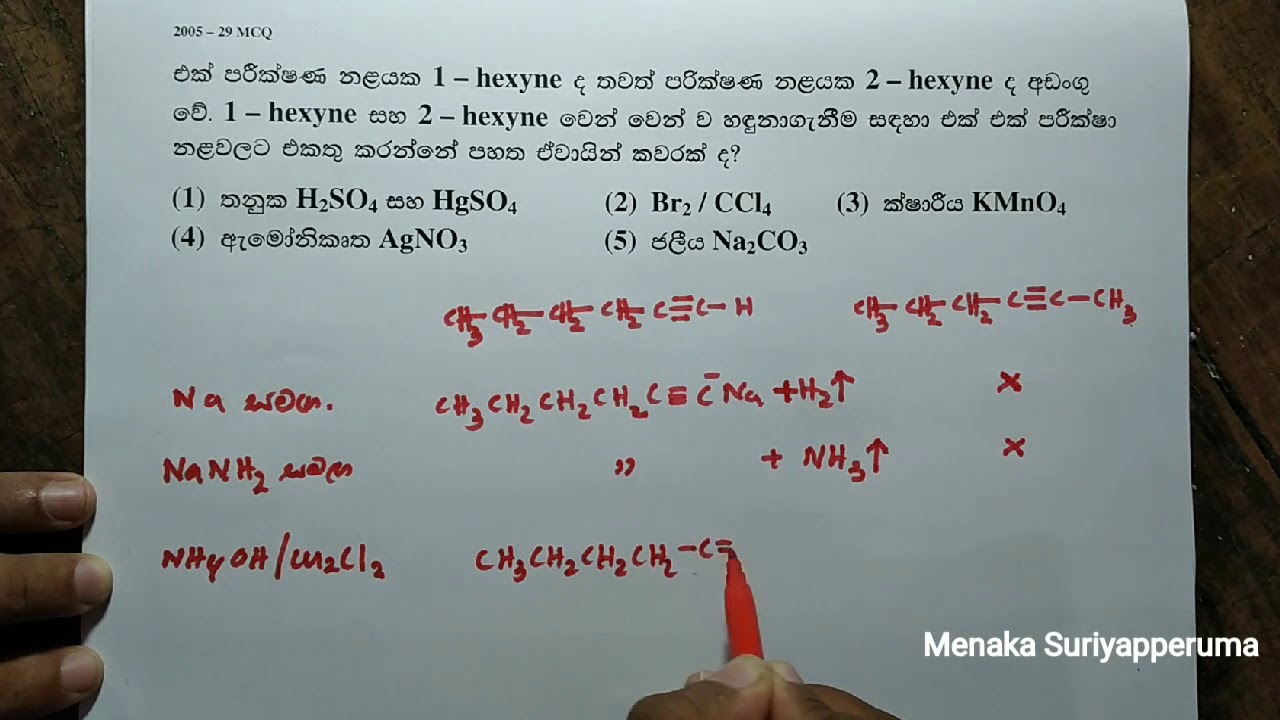 2005 – 29 MCQ
එක් පරීක්ෂණ නළයක 1 – hexyne ද තවත් පරික්ෂණ නළයක 2 – hexyne ද අඩංගු
වේ. 1 – hexyne සහ 2 – hexyne වෙන් වෙන් ව හඳුනාගැනීම සඳහා එක් එක් පරීක්ෂා
නළවලට එකතු කරන්නේ පහත ඒවායින් කවරක් ද?
(1) තනුක H₂SO₄ සහ HgSO₄ (2) Br₂ / CCl₄ (3) ක්ෂාරීය KMnO₄
(4) ඇමෝනිකෘත AgNO₃ (5) ජලීය Na₂CO₃
CH₃–CH₂–CH₂–CH₂–C≡C–H CH₃–CH₂–CH₂–C≡C–CH₃
Na සමඟ. CH₃CH₂CH₂CH₂C≡C⁻Na +H₂↑ ×
NaNH₂ සමඟ ,, + NH₃↑ ×
NH₄OH/Cu₂Cl₂ CH₃CH₂CH₂CH₂–C=
Menaka Suriyapperuma